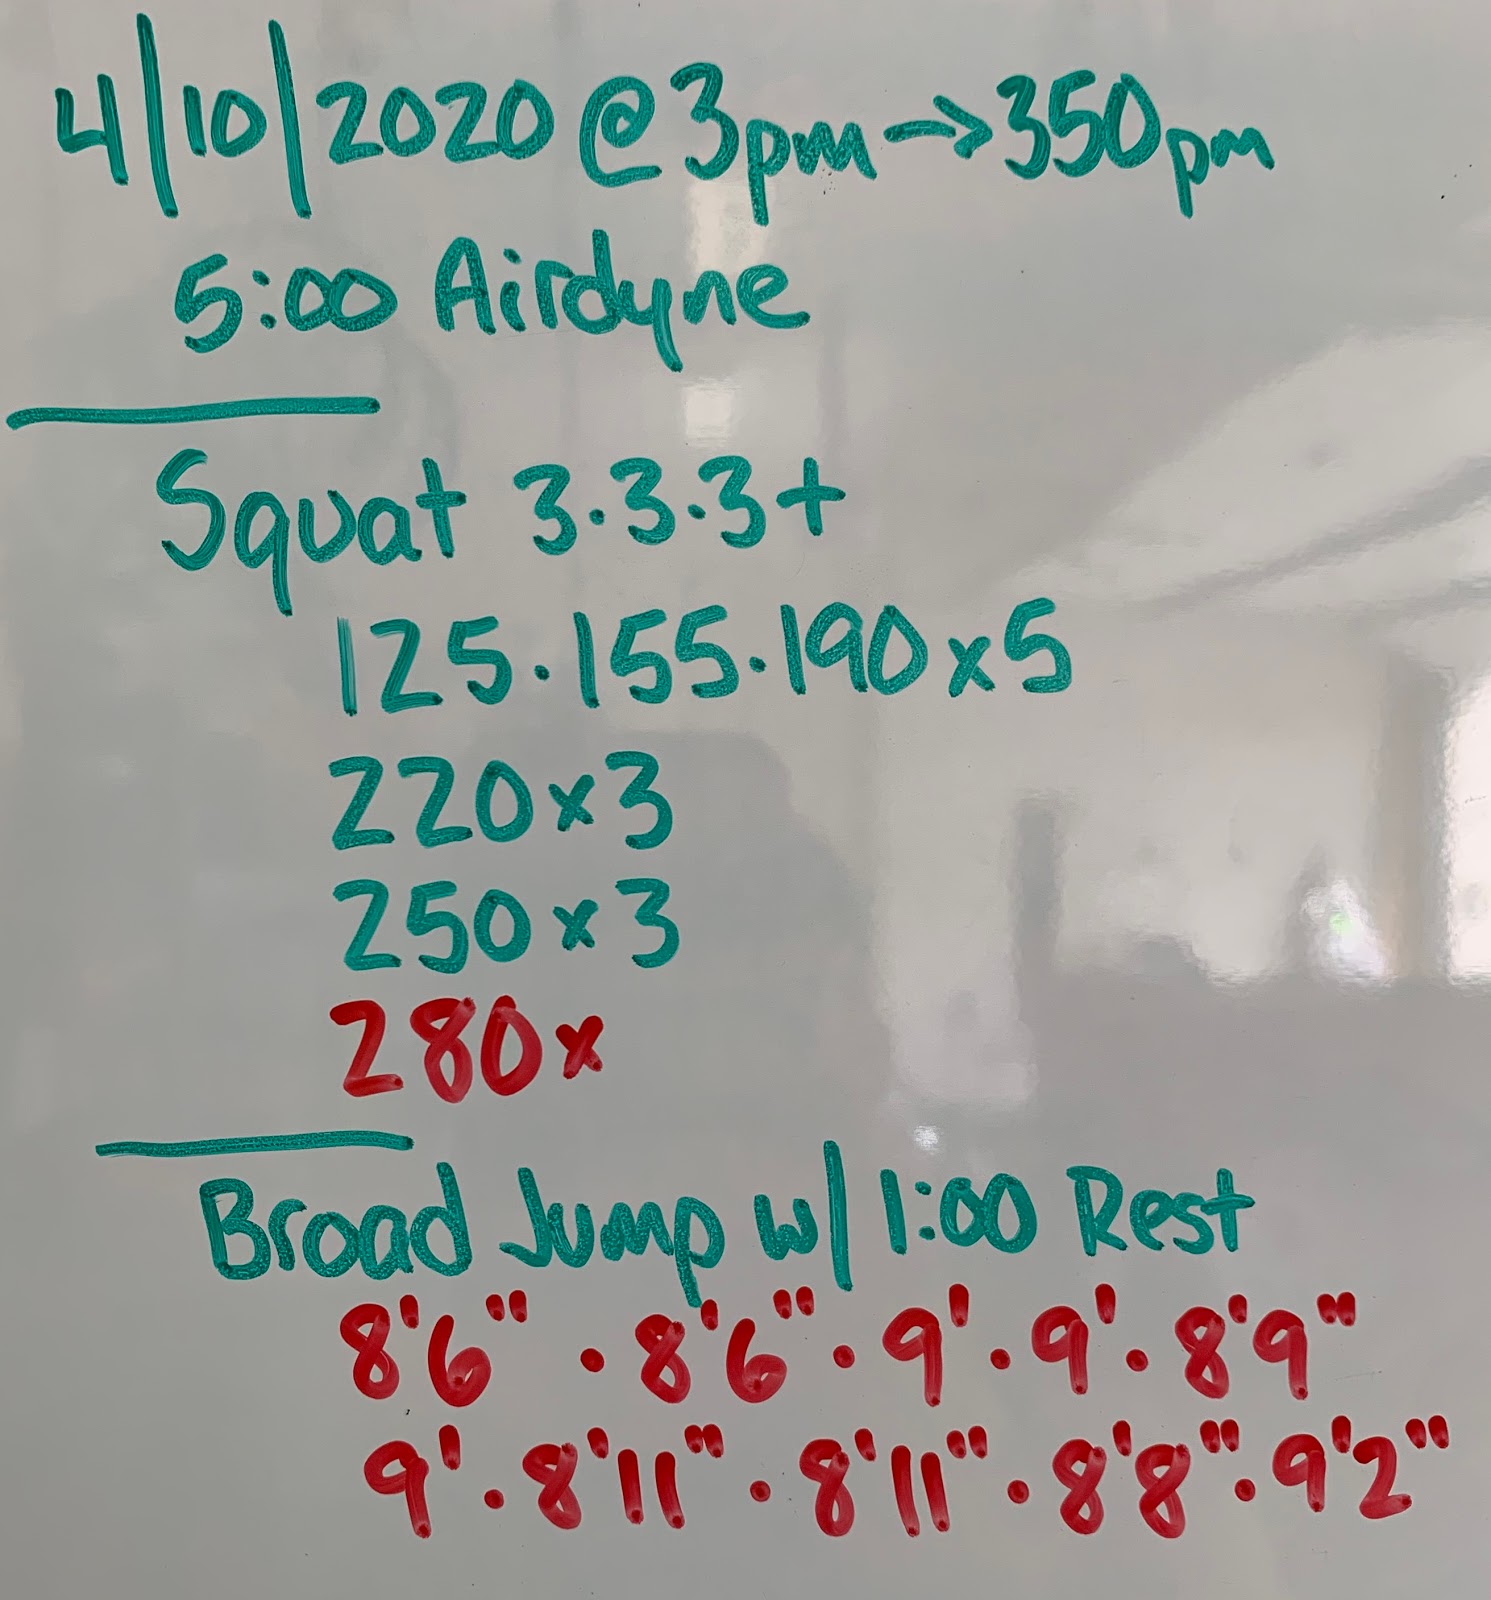 4/10/2020 @ 3pm → 350pm
5:00 Airdyne
Squat 3.3.3+
125.155.190x5
220x3
250x3
280x
Broad Jump w/ 1:00 Rest
8'6" . 8'6" . 9' . 9' . 8'9"
9' . 8'11" . 8'11" . 8'8" . 9'2"